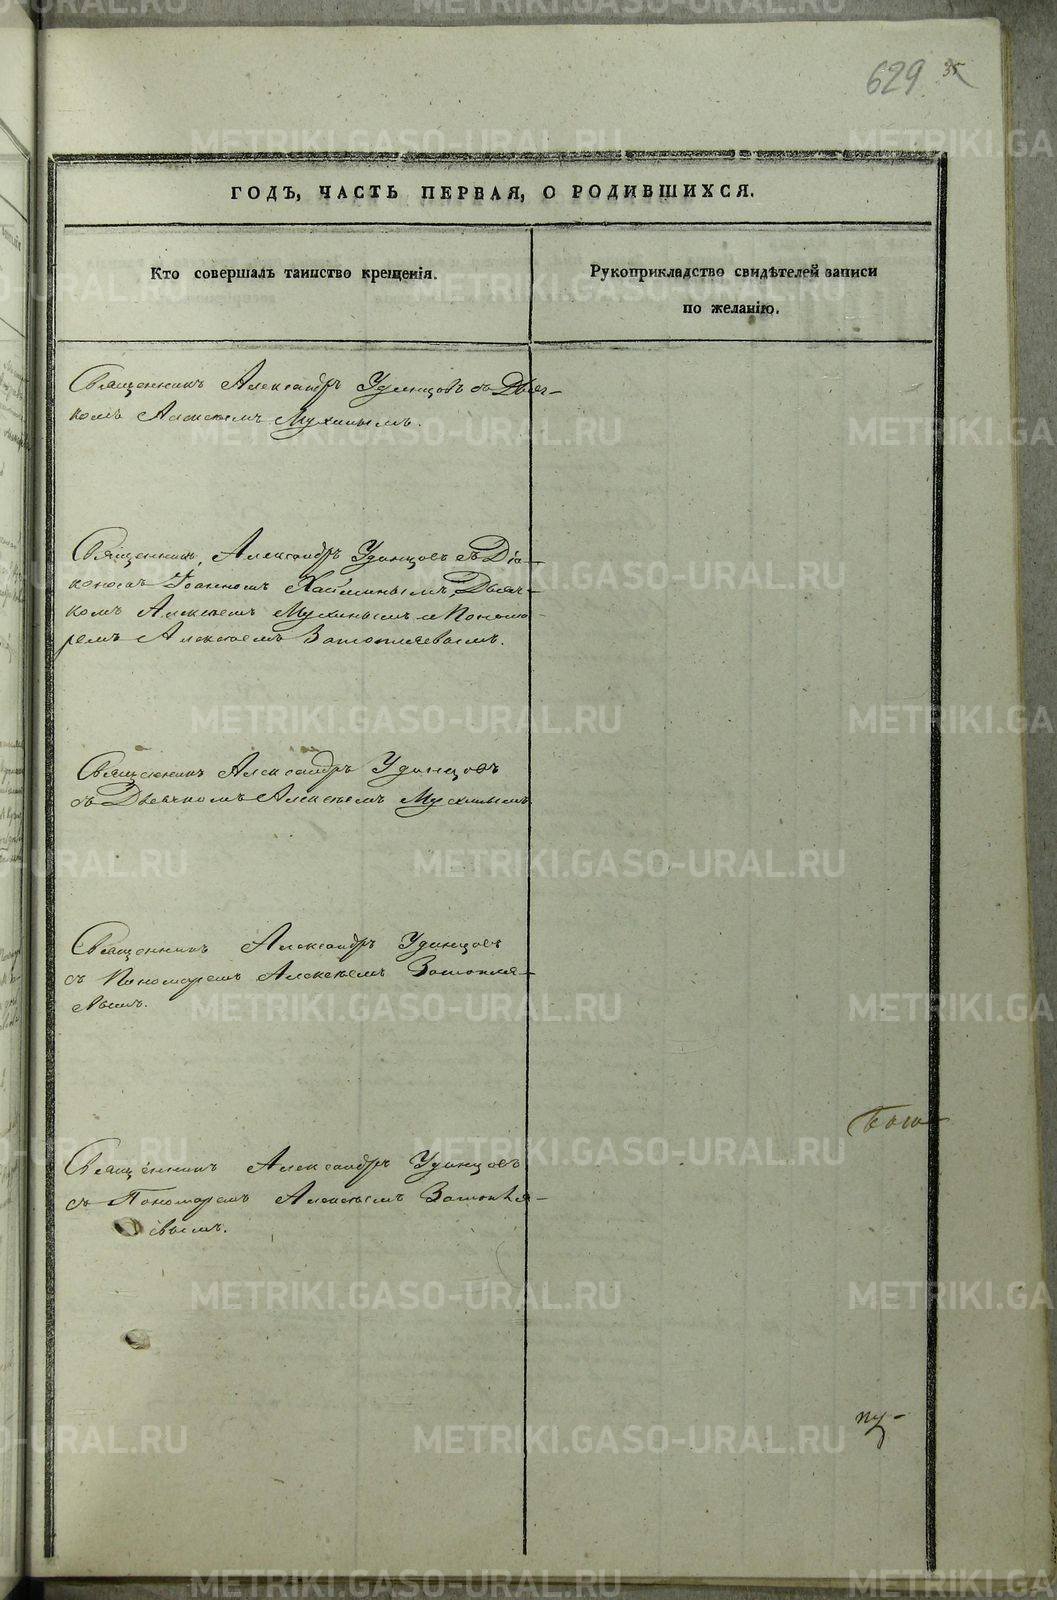 629 35
ГОДЪ, ЧАСТЬ ПЕРВАЯ, О РОДИВШИХСЯ.
Кто совершалъ таинство крещенія.
Рукоприкладство свидѣтелей записи
по желанію.
Священникъ Александръ Удинцовъ съ Дьяч-
комъ Алексѣемъ Мухинымъ.
Священникъ Александръ Удинцовъ съ Діа-
кономъ Іоанномъ Хайминымъ, Дьяч-
комъ Алексѣемъ Мухинымъ и Понома-
ремъ Алексѣемъ
Священникъ Александръ Удинцовъ
съ Дьячкомъ Алексѣемъ Мухинымъ
Священникъ Александръ Удинцовъ
съ Пономаремъ Алексѣемъ
вымъ.
Священникъ Александръ Удинцовъ
съ Пономаремъ Алексѣемъ
вымъ.
METRIKI.GASO-URAL.RU